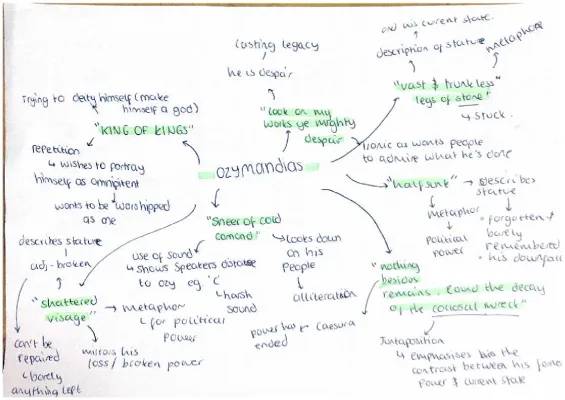 and his current state.
description of statue
metaphor
"vast & trunkless
legs of stone"
↳ stuck.
lasting legacy
he is despair
"look on my
works ye mighty
despair
ironic as wants people
to admire what he's done
trying to deify himself (make
himself a god)
"KING OF KINGS"
repetition
↳ wishes to portray
himself as omnipitent
wants to be worshipped
as one
OZYMANDIAS
"half sunk" → describes
statue
metaphor
↓
political
power
forgotten &
barely
remembered
his downfall
"Sneer of cold
comand"
looks down
on his
people
alliteration
use of sound
↳ shows speakers distaste
to ozy eg 'c'
↳ harsh
sound
describes statue
adj - broken
"shattered
visage"
→ metaphor
↳ for political
power
can't be
repaired
↳ barely
anything left
mirrors his
loss / broken power
"nothing
besides
remains. round the decay
of the colossal wreck"
power has ← caesura
ended
Juxtaposition
↳ emphasises the
contrast between his former
power & current state